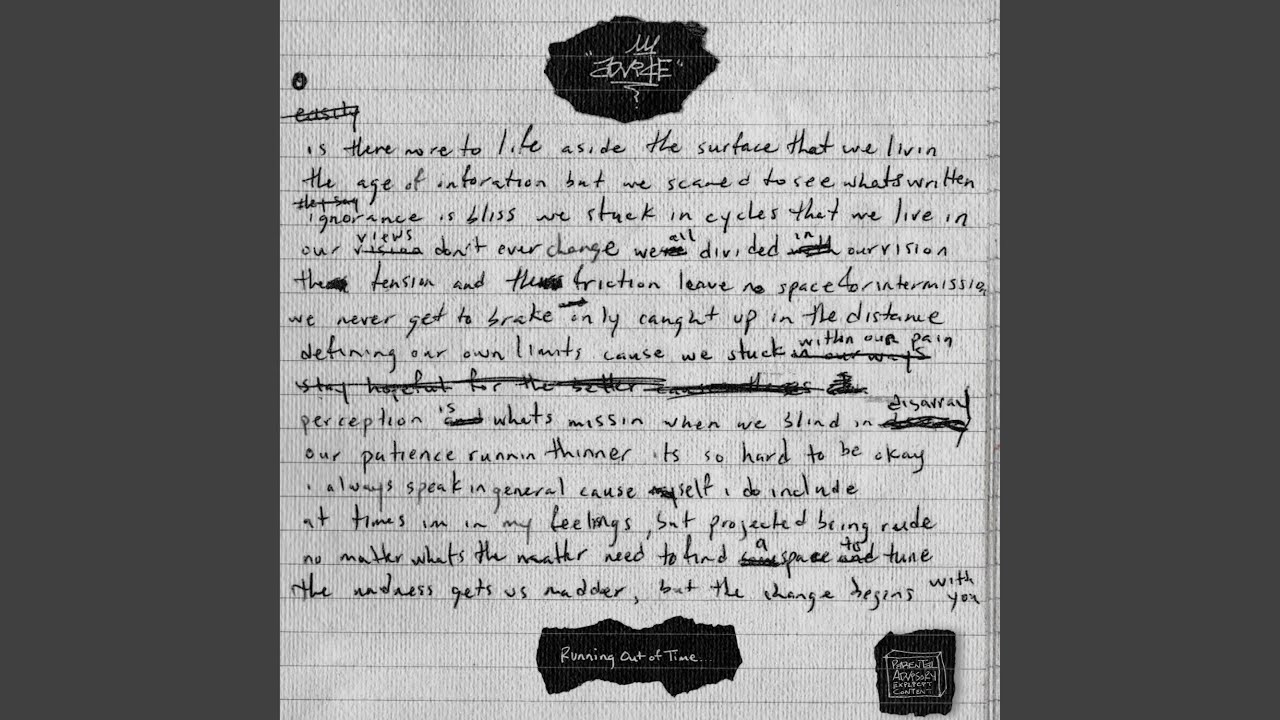 is there more to life aside the surface that we livin
the age of inforation but we scared to see whats written
ignorance is bliss we stuck in cycles that we live in
our views don't ever change we all divided in our vision
the tension and the friction leave no space for intermission
we never get to brake only caught up in the distance
defining our own limits cause we stuck within our pain
perception is whats missin when we blind in disarray
our patience runnin thinner its so hard to be okay
i always speak in general cause myself i do include
at times im in my feelings, but projected being rude
no matter whats the matter need to find a space to tune
the madness gets us madder, but the change begins with you
Running Out of Time...
PARENTAL
ADVISORY
EXPLICIT
CONTENT